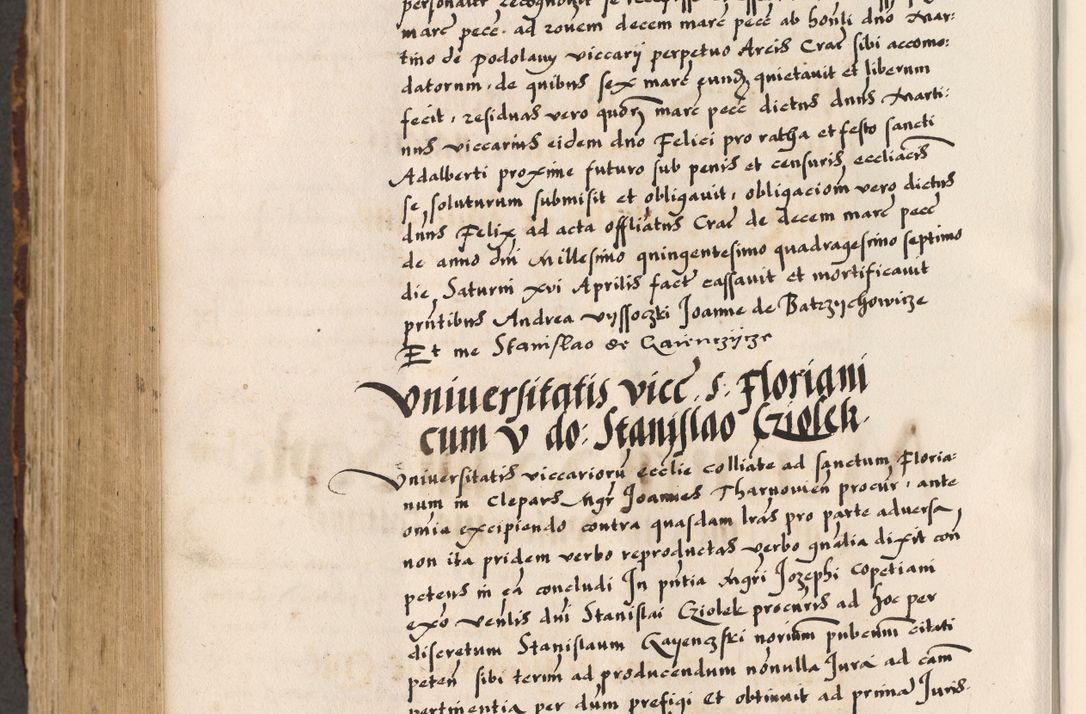 marc pecc. ad rouem decem marc pecc ab honli dno Mar:
tino de Podolany viccarij perpetuo Arcis Crac sibi accomo:
datorum, de quibus sex marc eundem quietauit et liberum
fecit, residuas vero quor marc pecc dictus dnus Marti:
nus viccarius eidem dno Felici pro ratha et festo sancti
Adalberti proxime futuro sub penis et censuris eccliacis
se soluturum submisit et obligauit, obligaciom vero dictus
dnus Felix ad acta offliatus Crac de decem marc pecc
de anno dni Millesimo quingentesimo quadragesimo septimo
die Saturni xvi Aprilis fact cassauit et mortificauit
pntibus Andrea Vyssoczki Joanne de Batrzychowicze
Et me Stanislao de
Vniuersitatis vicc. S. Floriani
cum V do: Stanislao Cziolek.
Vniuersitatis viccarioru ecclie colliate ad sanctum Floria:
num in Clepars Mgr Joannes Tharnovien procur, ante
omia excipiendo contra quasdam lras pro parte aduersa,
non ita pridem verbo reproductas verbo gnalia dixit con
petens in ea concludi In pntia Mgri Jozephi Copetiani
exo venlis dni Stanislai Cziolek procuris ad hoc per
discretum Stanislaum Gayenczski norium pubcum citati
peten sibi terim ad producendum nonulla Jura ad cam
pertinentia per dum prefigi Et obtinuit ad prima Juris